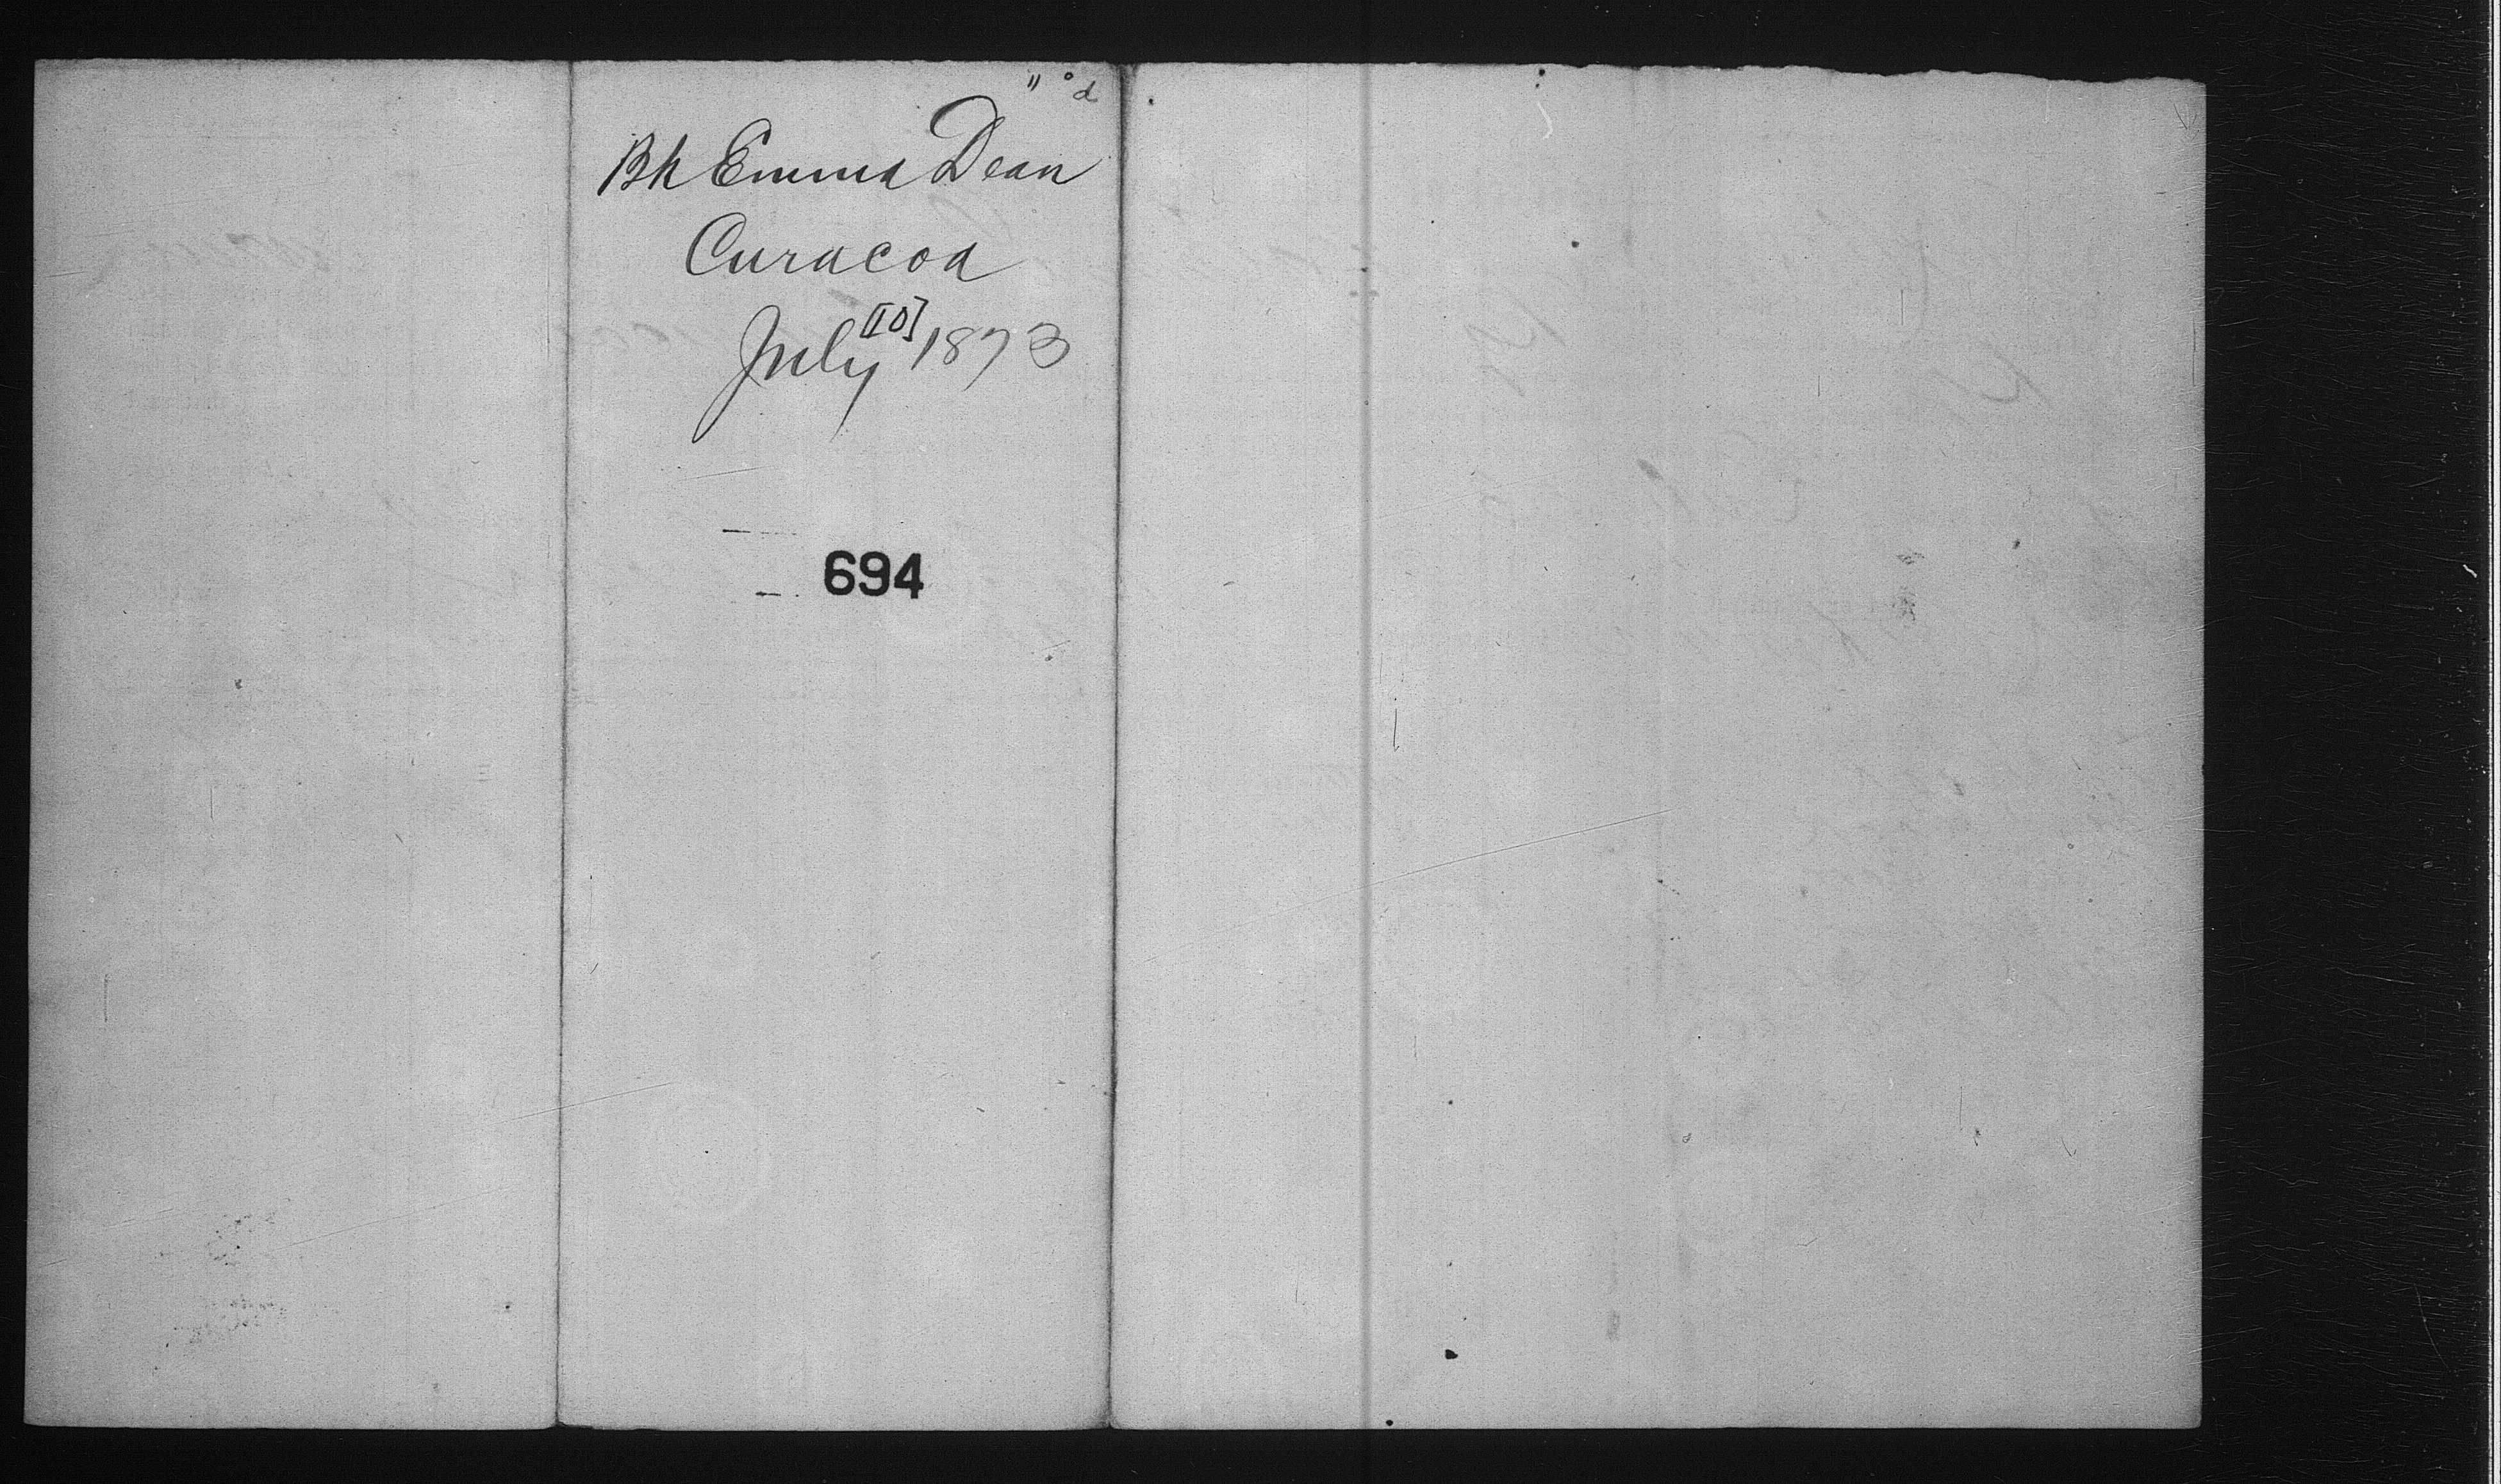 " ° d
Bk Emma Dean
Curacoa
July [10] 1873
694